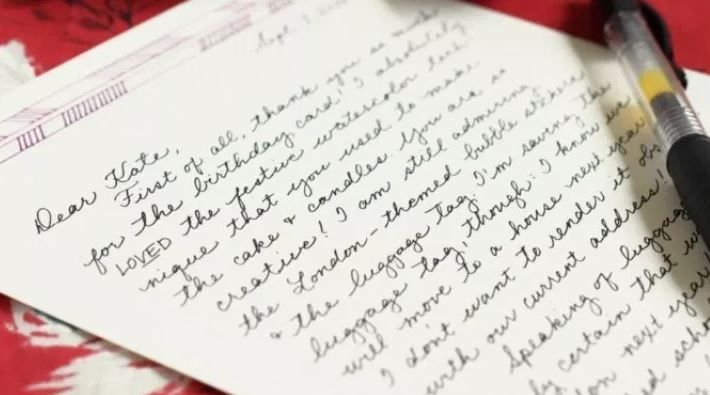 Sept. 3
Dear Kate,
First of all, thank you so much
for the birthday card! I absolutely
LOVED the festive watercolor tech-
nique that you used to make
the cake & candles. You are so
creative! I am still admiring
the London-themed bubble stickers
& the luggage tag. I'm saving the
luggage tag, though: I know we
will move to a house next year
I don't want to render it obs
with our current address!
Speaking of luggag
ly certain that w
don next year!
ed scho